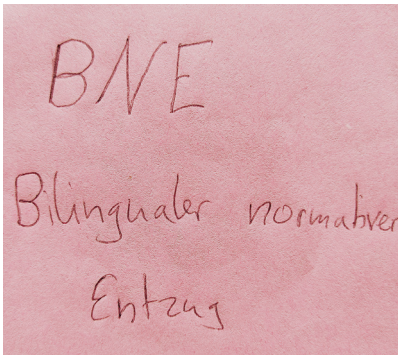 BNE
Bilingualer normativer
Entzug